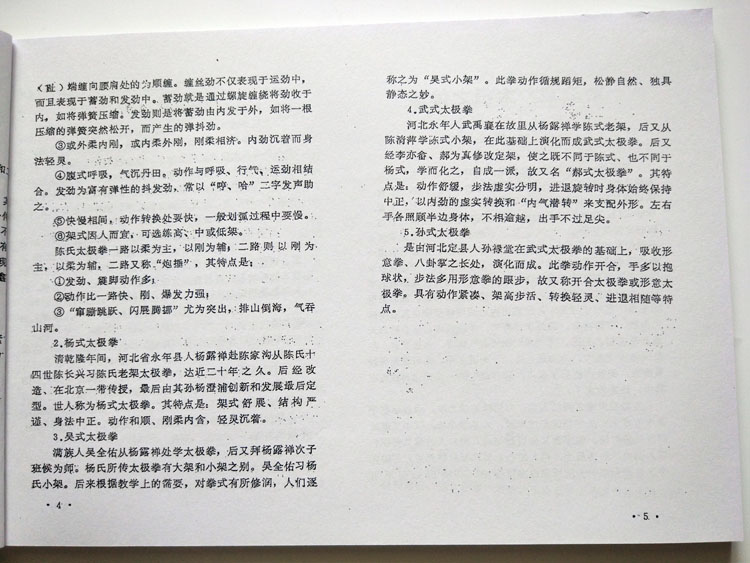 （趾）端缠向腰肩处的为顺缠。缠丝劲不仅表现于运劲中，
而且表现于蓄劲和发劲中。蓄劲就是通过螺旋缠绕将劲收于
内，如将弹簧压缩。发劲则是将蓄劲由内发于外，如将一根
压缩的弹簧突然松开，而产生的弹抖劲。
③或外柔内刚，或内柔外刚，刚柔相济。内劲沉着而身
法轻灵。
④腹式呼吸，气沉丹田。动作与呼吸、行气、运劲相结
合。发劲为富有弹性的抖发劲，常以“哼、哈”二字发声助
之。
⑤快慢相间，动作转换处要快，一般划弧过程中要慢。
⑥架式因人而宜，可选练高、中或低架。
陈氏太极拳一路以柔为主，以刚为辅；二路则以刚为
主，以柔为辅，二路又称“炮捶”，其特点是：
①发劲、震脚动作多；
②动作比一路快、刚、爆发力强；
③“窜蹦跳跃、闪展腾挪”尤为突出，排山倒海，气吞
山河。
2．杨式太极拳
清乾隆年间，河北省永年县人杨露禅赴陈家沟从陈氏十
四世陈长兴习陈氏老架太极拳，达近二十年之久。后经改
造、在北京一带传授，最后由其孙杨澄浦创新和发展最后定
型。世人称为杨式太极拳。其特点是：架式舒展、结构严
谨、身法中正。动作和顺、刚柔内含，轻灵沉着。
3．吴式太极拳
满族人吴全佑从杨露禅处学太极拳，后又拜杨露禅次子
班候为师。杨氏所传太极拳有大架和小架之别。吴全佑习杨
氏小架。后来根据教学上的需要，对拳式有所修润，人们遂
·4·
称之为“吴式小架”。此拳动作循规蹈矩，松静自然、独具
静态之妙。
4．武式太极拳
河北永年人武禹襄在故里从杨露禅学陈式老架，后又从
陈清萍学陈式小架，在此基础上演化而成武式太极拳。后又
经李亦畬、郝为真修改定架，使之既不同于陈式、也不同于
杨式，学而化之，自成一派，故又名“郝式太极拳”。其特
点是：动作舒缓，步法虚实分明，进退旋转时身体始终保持
中正，以内劲的虚实转换和“内气潜转”来支配外形。左右
手各照顾半边身体，不相逾越，出手不过足尖。
5．孙式太极拳
是由河北定县人孙禄堂在武式太极拳的基础上，吸收形
意拳、八卦掌之长处，演化而成。此拳动作开合，手多以抱
球状，步法多用形意拳的跟步，故又称开合太极拳或形意太
极拳。具有动作紧凑、架高步活、转换轻灵、进退相随等特
点。
·5·